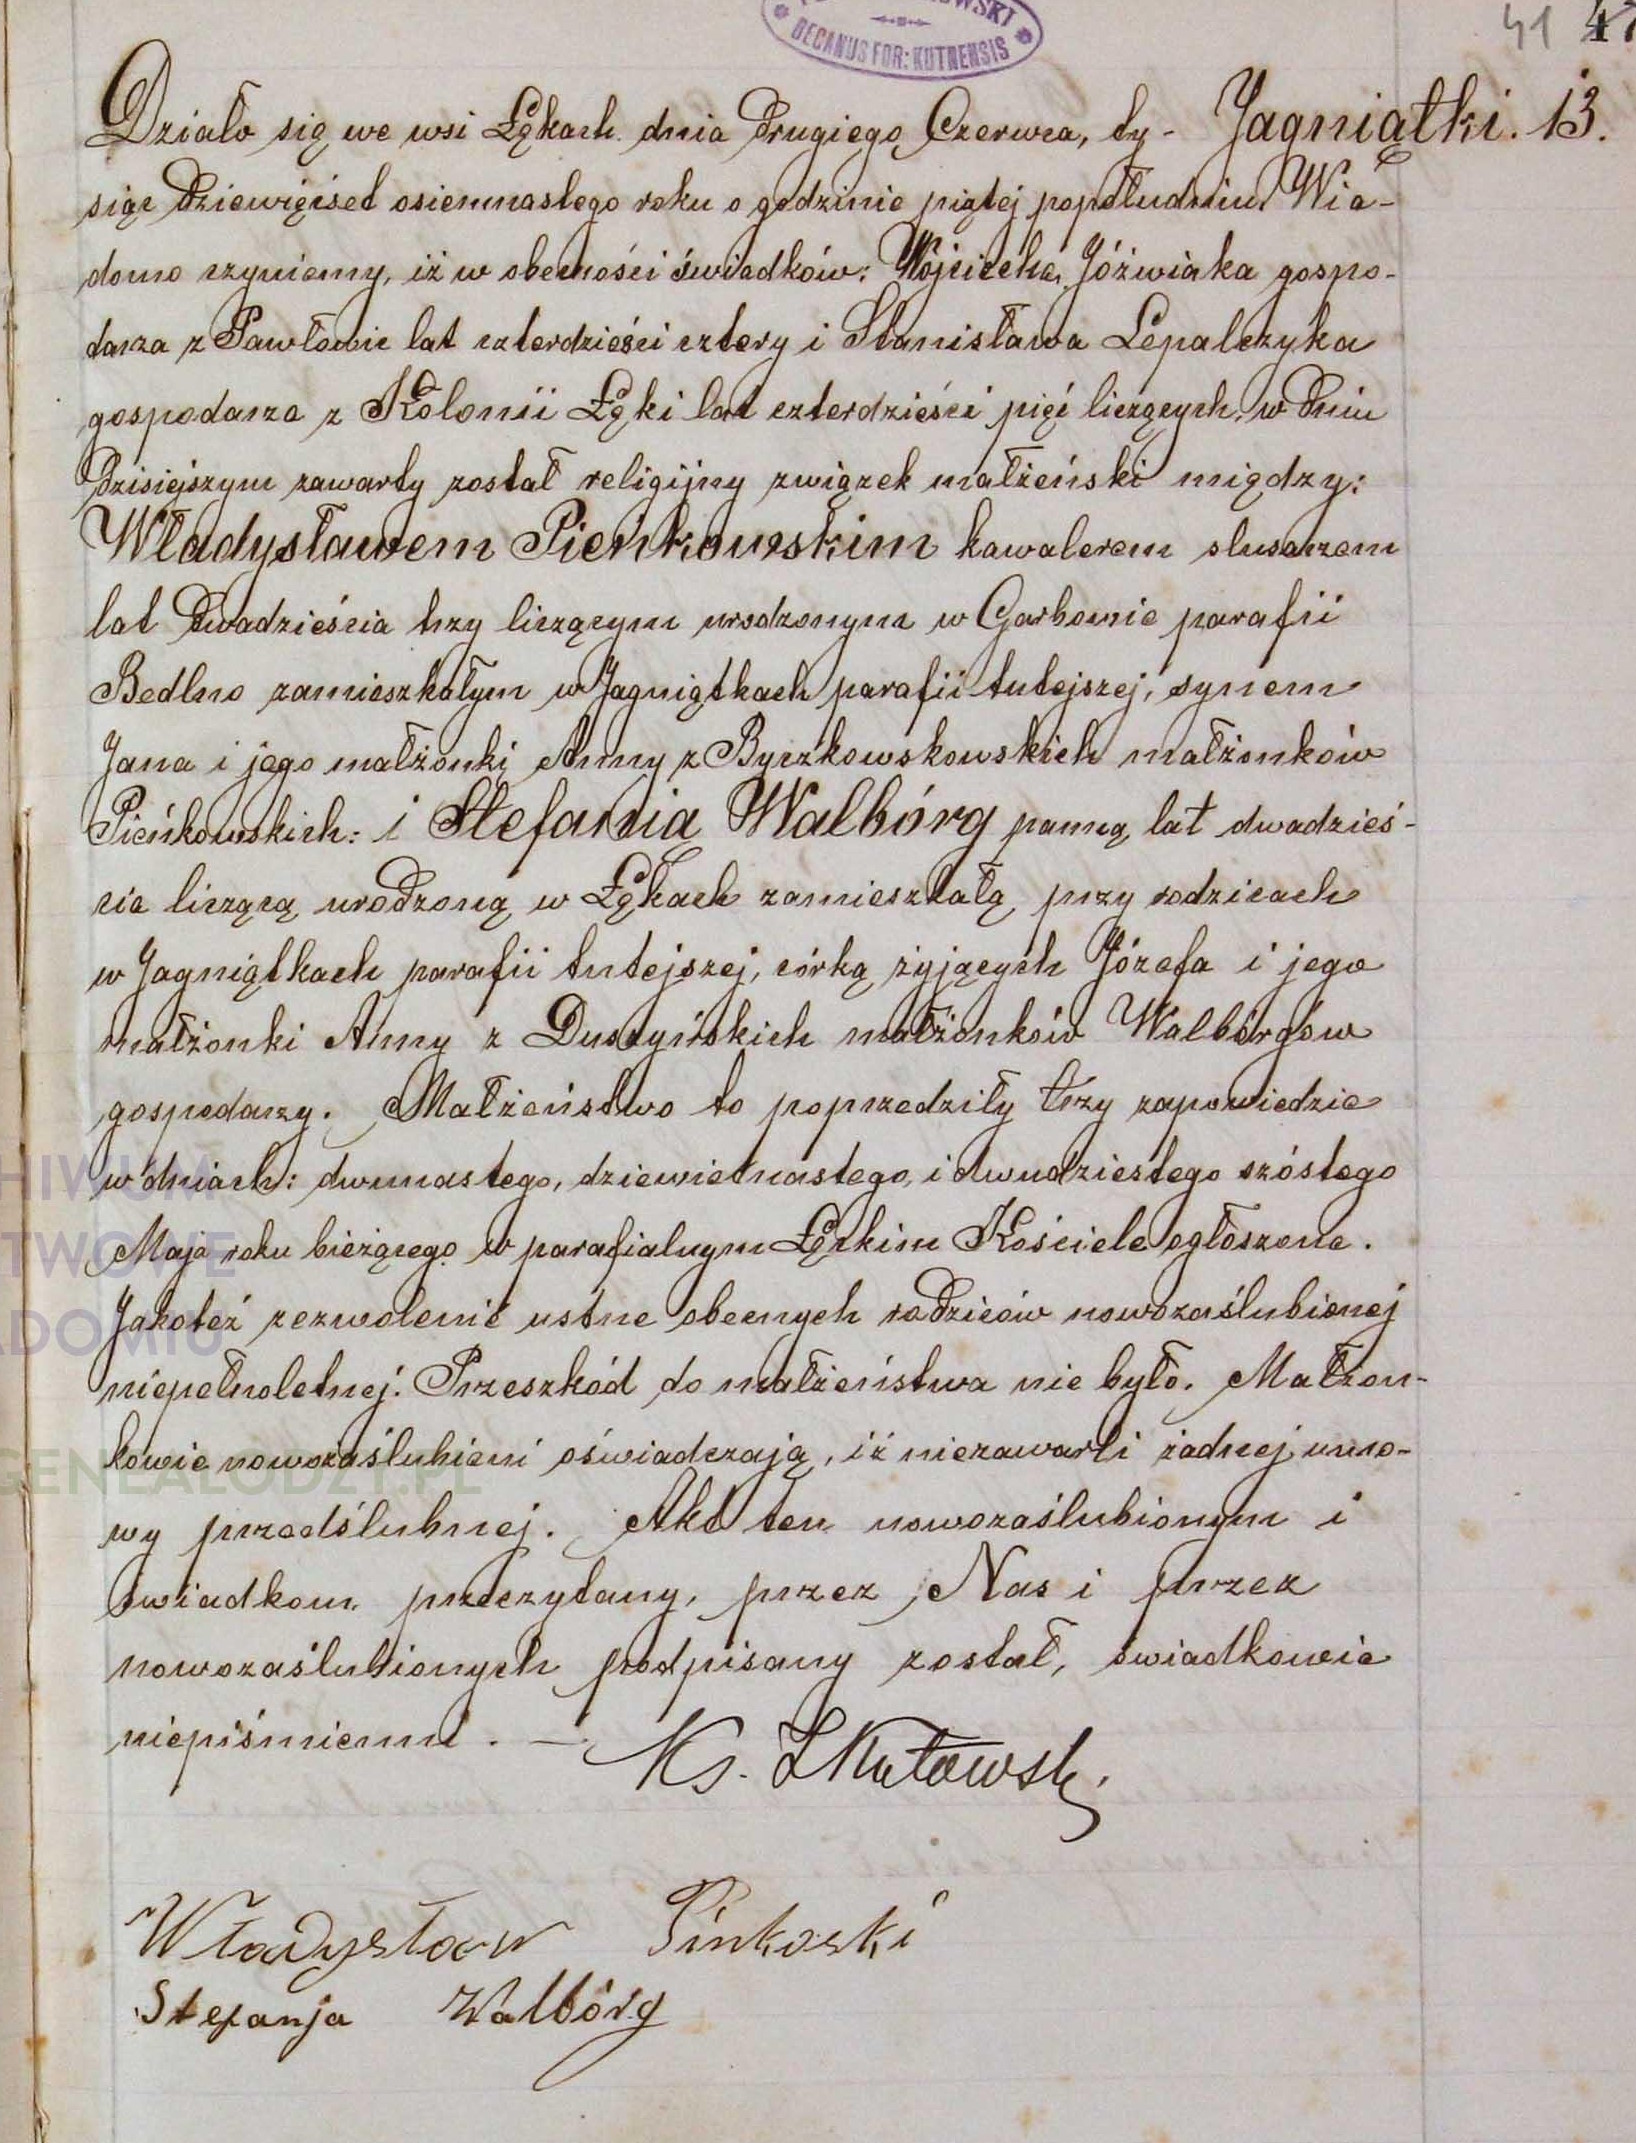 DECANUS FOR: KUTNENSIS
41
Jagniątki. 13.
Działo się we wsi Łękach dnia drugiego Czerwca, ty-
siąc dziewięćset osiemnastego roku o godzinie piątej popołudniu Wia-
domo czyniemy, iż w obecności świadków: Wojciecha Jóźwiaka gospo-
darza z Pawłowic lat czterdzieści cztery i Stanisława Lepalczyka
gospodarza z Kolonii Łęki lat czterdzieści pięć liczących, w dniu
dzisiejszym zawarty został religijny związek małżeński między:
Władysławem Pieńkowskim kawalerem slusarzem
lat dwadzieścia trzy liczącym urodzonym w Garbowie parafii
Bedlno zamieszkałym w Jagniątkach parafii tutejszej, synem
Jana i jego małżonki Anny z Byczkowskowskich małżonków
Pieńkowskich: i Stefanią Walbórg panną lat dwadzieś-
cia liczącą urodzoną w Łękach zamieszkałą przy rodzicach
w Jagniątkach parafii tutejszej, córką żyjących Józefa i jego
małżonki Anny z Duszyńskich małżonków Walbórgów
gospodarzy. Małżeństwo to poprzedziły trzy zapowiedzie
w dniach: dwunastego, dziewietnastego, i dwudziestego szóstego
Maja roku bieżącego w parafialnym Łęckim Kościele ogłoszone.
Jakoteż zezwolenie ustne obecnych rodziców nowozaślubionej
niepełnoletnej. Przeszkód do małżeństwa nie było. Małżon-
kowie nowozaślubieni oświadczają, iż niezawarli żadnej umo-
wy przedślubnej. Akt ten nowozaślubionym i
świadkom przeczytany, przez Nas i przez
nowozaślubionych podpisany został, świadkowie
niepiśmienni. —
Ks.
Władysław Pinkoski
Stefanja Walbórg
GENEALODZY.PL